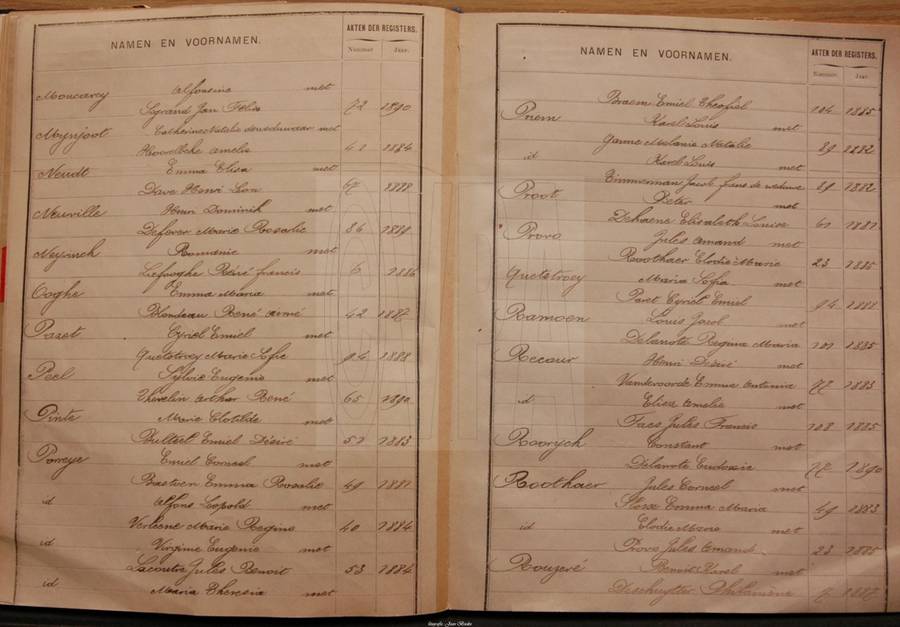 NAMEN EN VOORNAMEN.
AKTEN DER REGISTERS.
Nummer Jaar.
Moucarcy Alfonsine met
Legrand Jan Félix 72 1890
Mynjoot Catherine Natalie met
Amelie 41 1884
Neudt Emma Elisa met
Dave Henri Leon 67 1888
Neuville Henri Dominik met
Deforer Marie Rosalie 86 1889
Neyrinck Romanie met
Liefooghe Réné francis 6 1886
Ooghe Emma Maria met
Blondeau René aimé 42 1887
Paret Cyriel Emiel met
Quetstroey Marie Sofie 94 1888
Peel Sylvie Eugenie met
Therelin Arthur René 65 1890
Pinte Marie Clotilde met
Bulteel Emiel Désiré 52 1883
Porreye Emiel Corneel met
Bastoen Emma Rosalie 49 1881
id Alfons Leopold met
Verlesne Marie Regine 40 1884
id Virginie Eugenie met
Lacoutre Jules Benoit 53 1884
id Maria Theresia met
NAMEN EN VOORNAMEN.
AKTEN DER REGISTERS.
Nummer. Jaar.
Braem Emiel Theofiel 104 1885
Priem Karel Louis met
Janne Melanie Natalie 89 1882
id Karel Louis met
Zimmerman Jacob frans de weduwe 89 1882
Proot Pieter met
Dehaene Elisabeth Louise 61 1881
Provo Jules Amand met
Roothaer Elodie Marie 23 1885
Quetstroey Maria Sofia met
Paret Cyriel Emiel 94 1888
Ramoen Louis Jacob met
Delanote Regina Maria 101 1885
Recour Henri Désiré met
Vandevoorde Emma Antonia 77 1883
id Elisa Amelie met
Faes Jules Francis 108 1885
Roorych Constant met
Delanote Eudoxie 77 1890
Roothaer Jules Corneel met
Emma Maria 49 1883
id Elodie Marie met
Provo Jules Amand 23 1885
Rouzeré Benoit Karel met
Deschuytter Philomène 7 1887